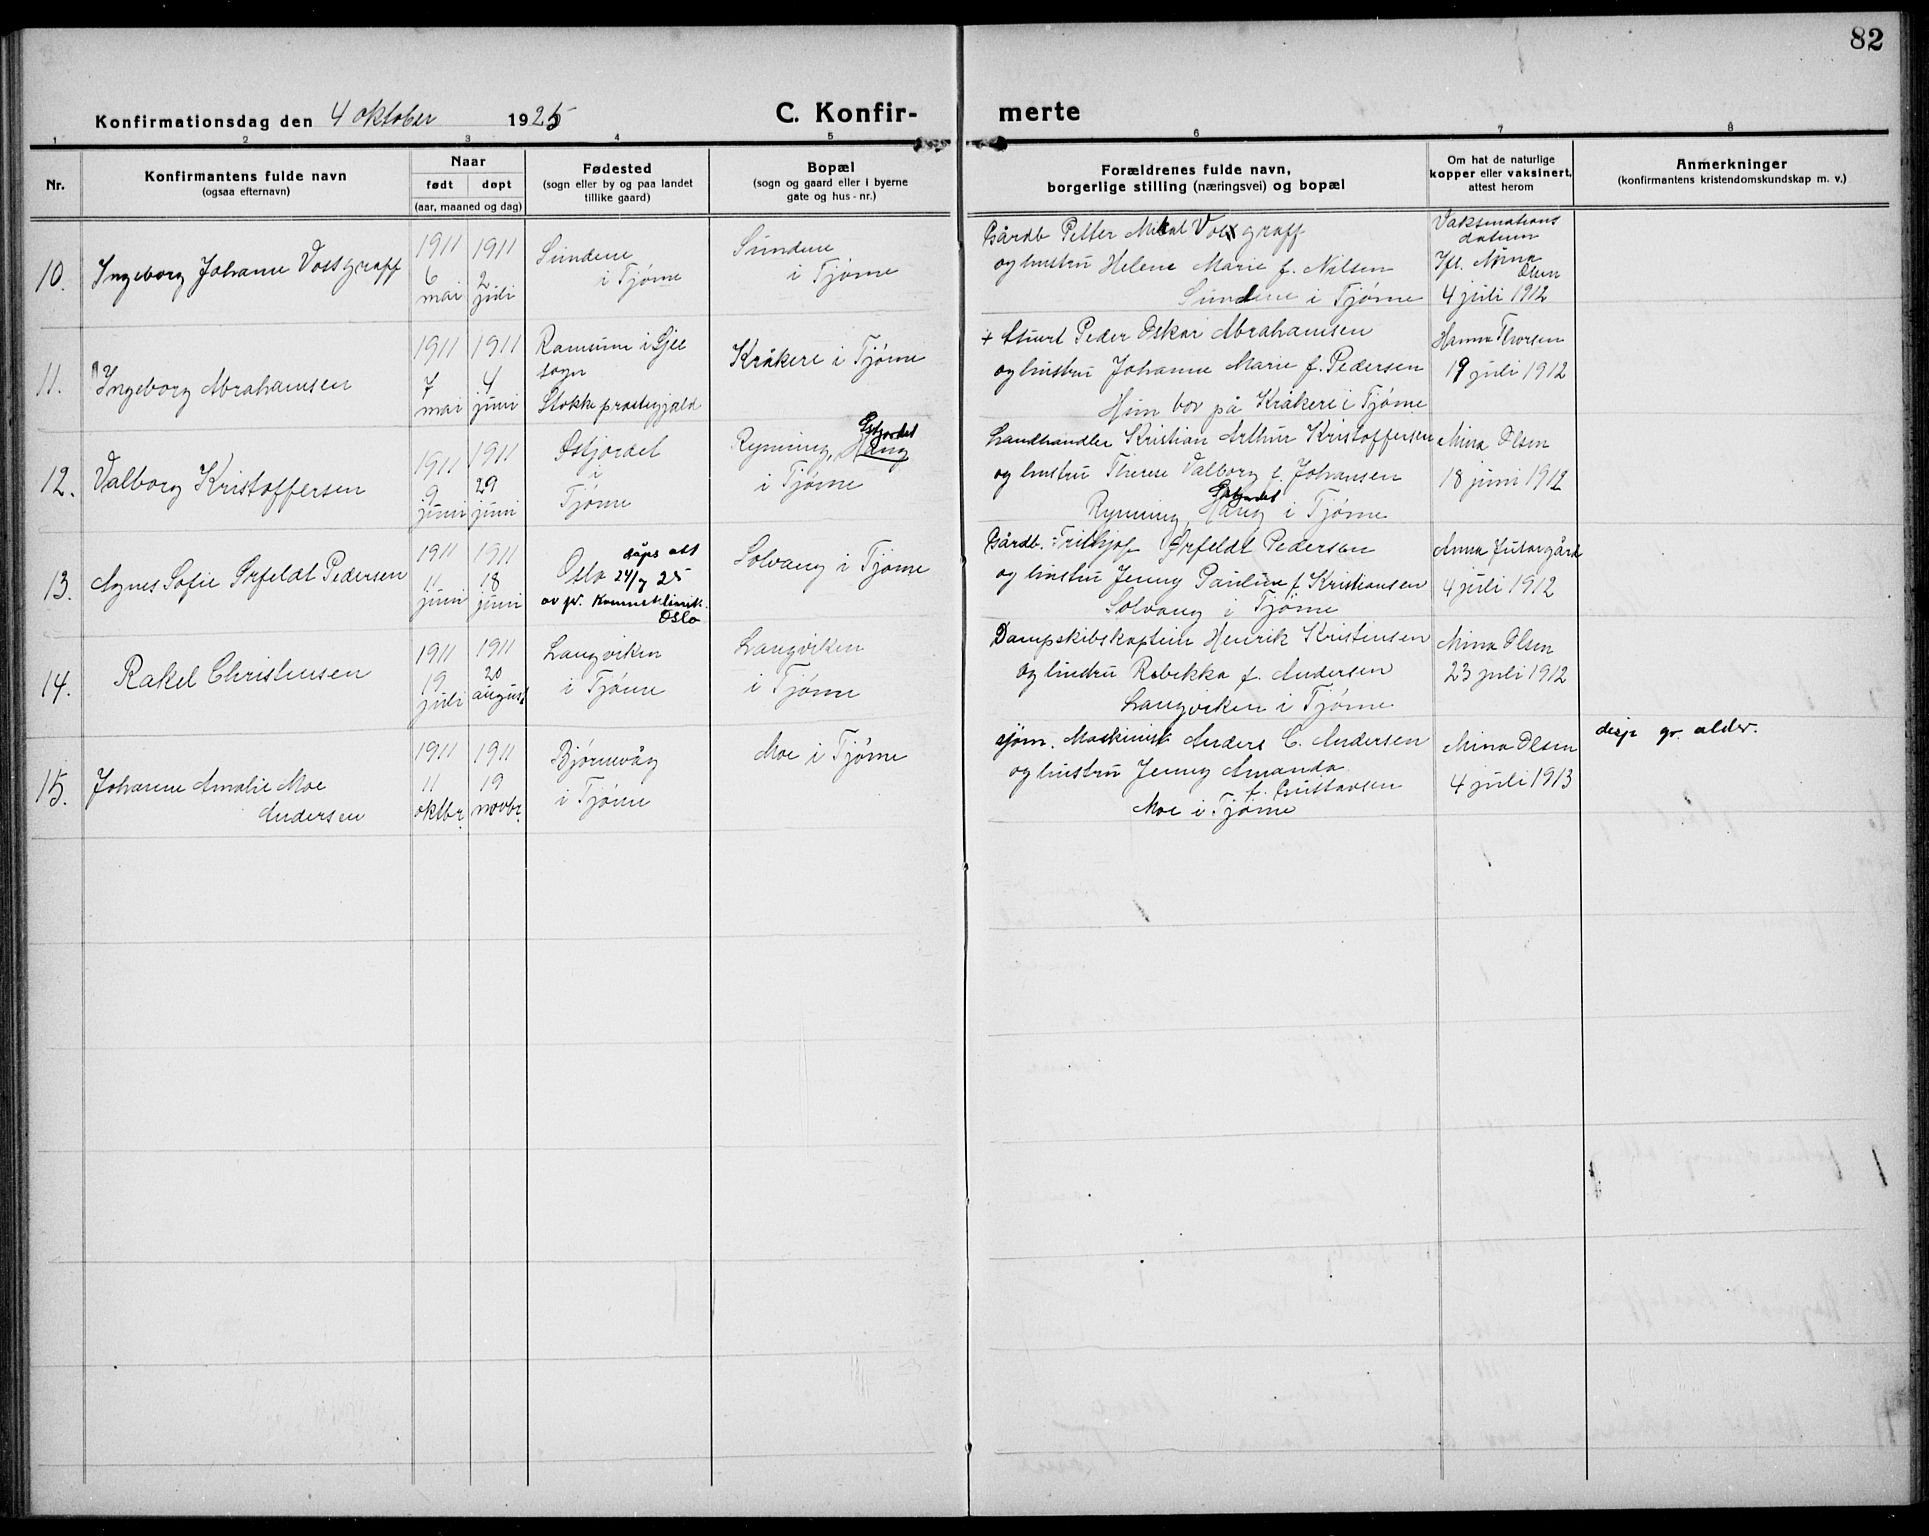 82
Konfirmationsdag den 4 oktober 1925
C. Konfir- merte
1 2 3 4 5 6 7 8
Nr.
Konfirmantens fulde navn
(ogsaa efternavn)
Naar
født døpt
(aar, maaned og dag)
Fødested
(sogn eller by og paa landet
tillike gaard)
Bopæl
(sogn og gaard eller i byerne
gate og hus-nr.)
Forældrenes fulde navn,
borgerlige stilling (næringsvei) og bopæl
Om hat de naturlige
kopper eller vaksinert,
attest herom
Anmerkninger
(konfirmantens kristendomskundskap m. v.)
10.
Ingeborg Johanne Vossgraff
1911
6
mai
1911
2
juli
Sundene
i Tjøme
Sundene
i Tjøme
Gårdb. Petter Mikal Vossgraff
og hustru Helene Marie f. Nilsen
Sundene i Tjøme
Vaksinations
datum
Mina
Olsen
4 juli 1912
11.
Ingeborg Abrahamsen
1911
7
mai
1911
4
juni
Ramsum i
sogn
Stokke prestegjæld
Kråkere i Tjøme
+ Stuert Peder Oskar Abrahamsen
og hustru Johanne Marie f. Pedersen
Hun bor på Kråkere i Tjøme
Hanna Thorsen
19 juli 1912
12.
Valborg Kristoffersen
1911
9
juni
1911
29
juni
Østjordet
i
Tjøme
Østjordet
Rynning, Haug
i Tjøme
Landhandler Kristian Arthur Kristoffersen
og hustru Therese Valborg f. Johansen
Østjordet
Rynning, Haug i Tjøme
Mina Olsen
18 juni 1912
13.
Agnes Sofie Ørfeldt Pedersen
1911
11
juni
1911
18
juni
dåps att
Oslo 24/7 25
av pr. Kvinneklinik.
Oslo
Solvang i Tjøme
Gårdb. Frithjof Ørfeldt Pedersen
og hustru Jenny Pauline f. Kristiansen
Solvang i Tjøme
Anna
4 juli 1912
14.
Rakel Christensen
1911
19
juli
1911
20
august
Langviken
i Tjøme
Langviken
i Tjøme
Dampskibskaptein Henrik Kristensen
og hustru Rebekka f. Andersen
Langviken i Tjøme
Mina Olsen
23 juli 1912
15.
Johanne Amalie Moe
Andersen
1911
11
oktbr.
1911
19
novbr.
Bjørnevåg
i Tjøme
Moe i Tjøme
sjøm. Maskinist Anders C. Andersen
og hustru Jenny Amanda
f. Gustavsen
Moe i Tjøme
Mina Olsen
4 juli 1913
disp gr. alder.